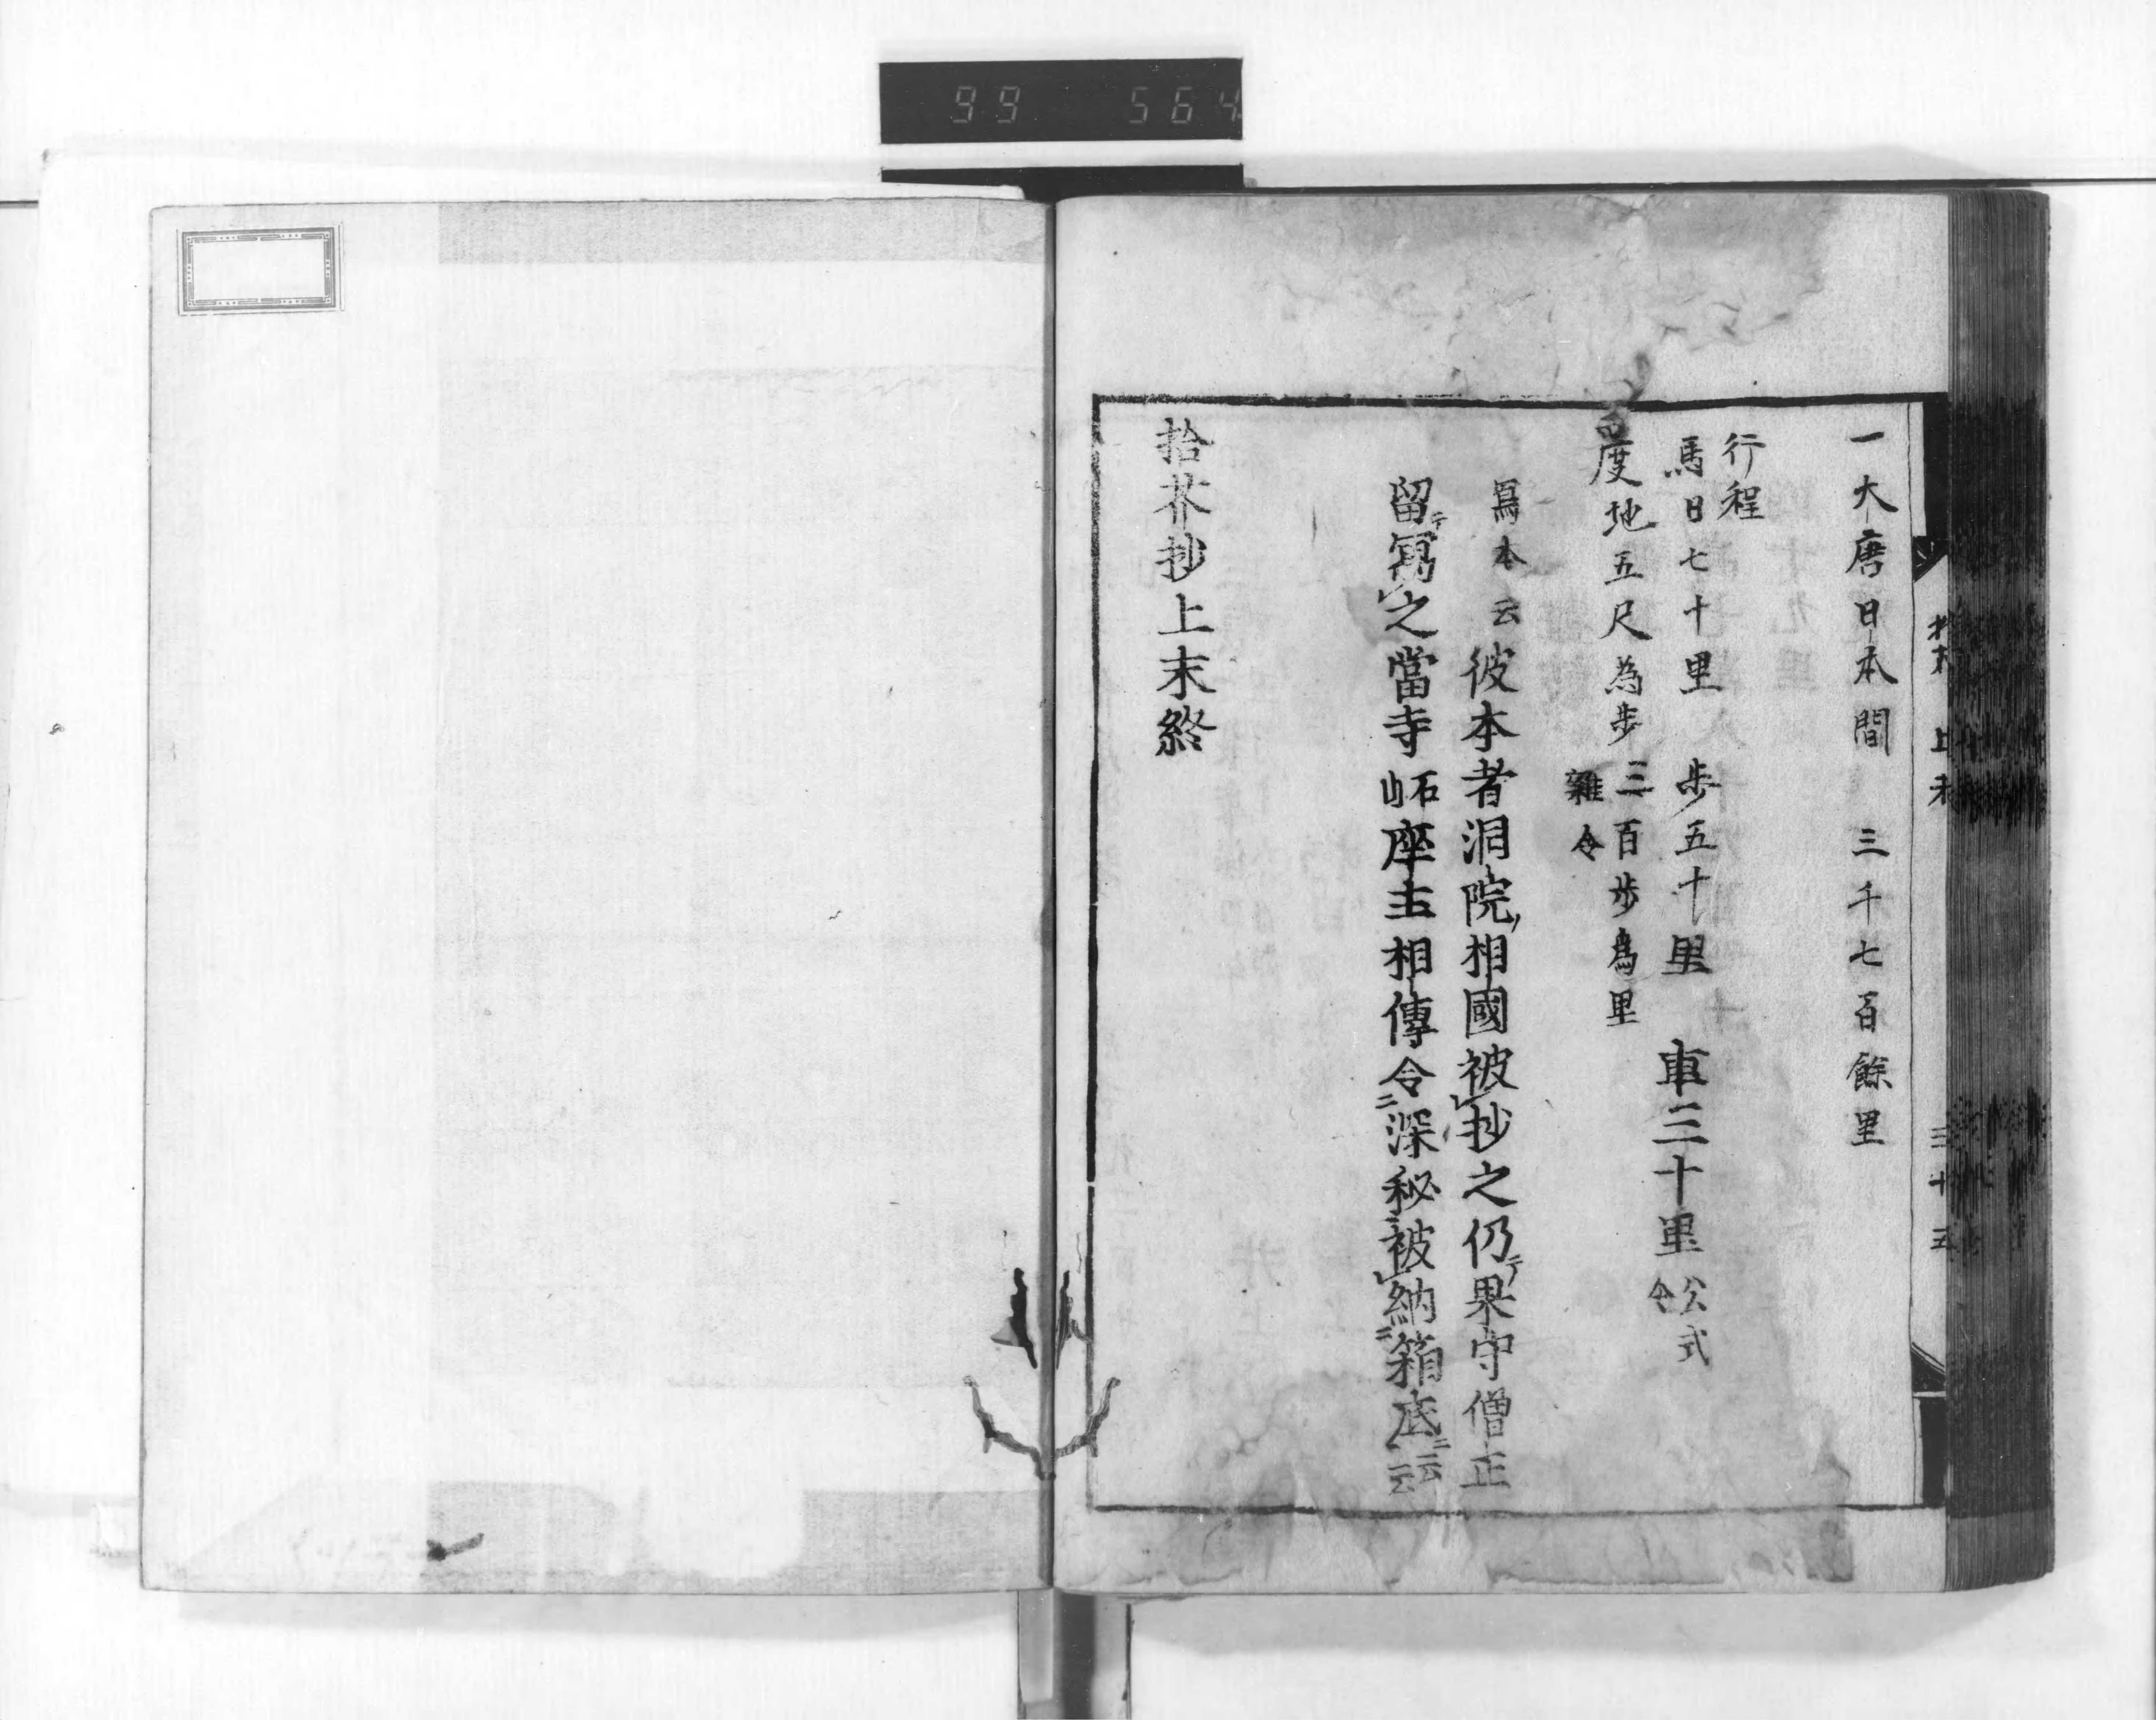 99 564
一大唐日本間　三千七百餘里
行程
馬日七十里　歩五十里　車三十里 公式令
度地五尺為歩 三百歩為里
雜令
寫本云彼本者洞院相國被抄之仍果守僧正
留寫之當寺 石山 座主相傳令深秘被納箱底云云
拾芥抄上末終
上末
三十五